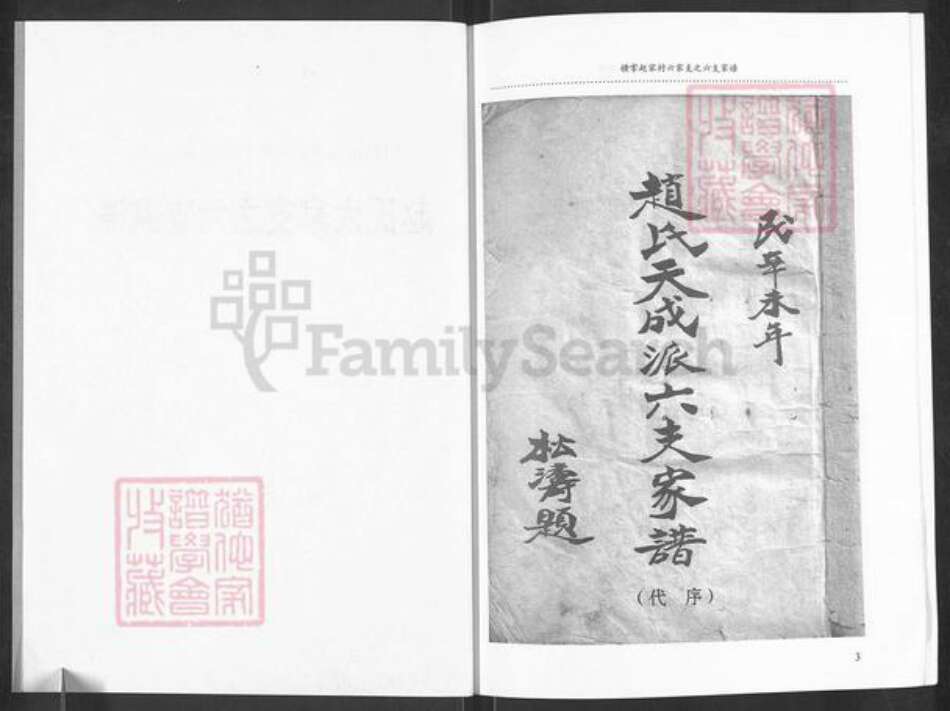 横掌赵家村六家支之六支家谱
民辛未年
趙氏天成派六夫家譜
松濤題
(代 序)
猶他家
譜學會
收藏
猶他家
譜學會
收藏
FamilySearch
3